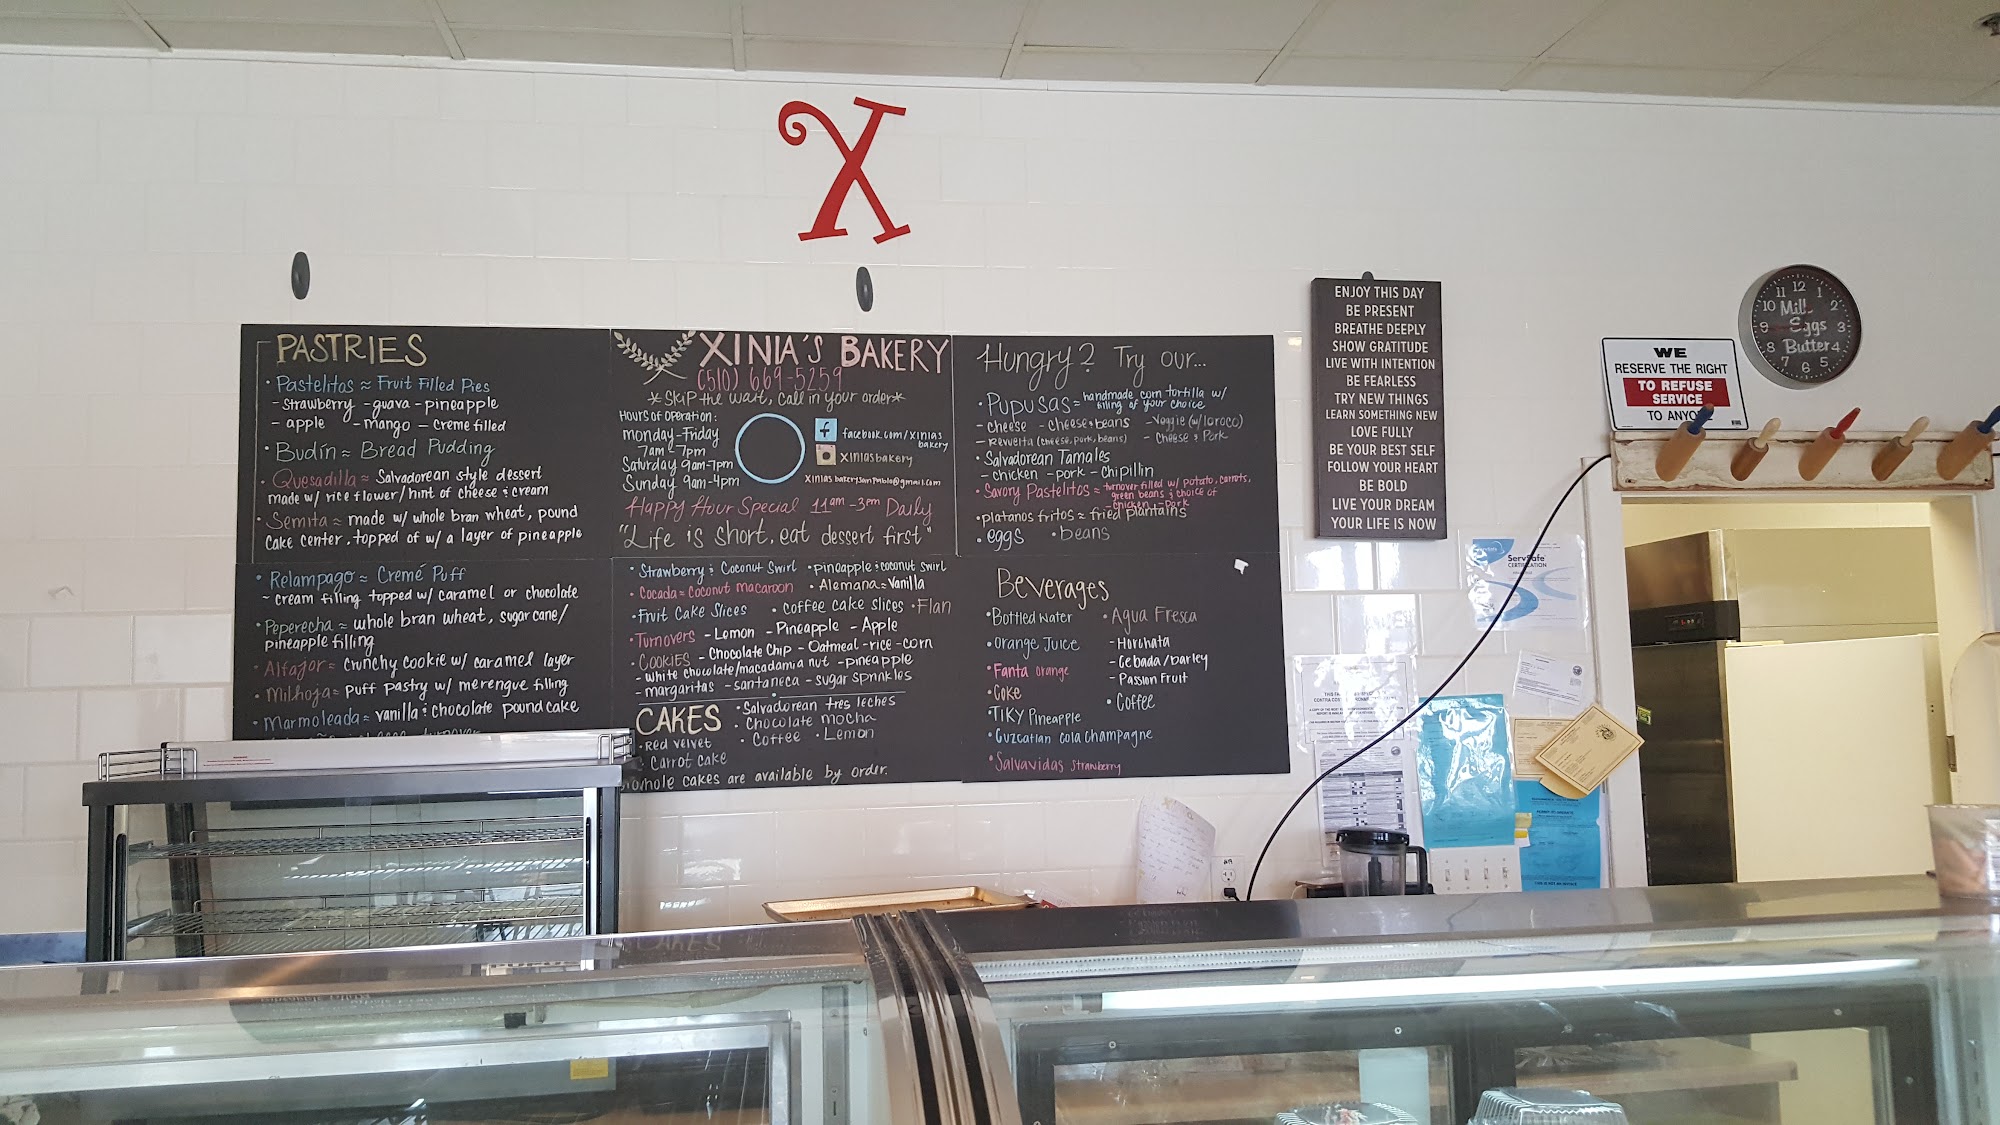 X
PASTRIES
• Pastelitos ≈ Fruit Filled Pies
- strawberry - guava - pineapple
- apple - mango - creme filled
• Budín ≈ Bread Pudding
• Quesadilla ≈ Salvadorean style dessert
made w/ rice flower/hint of cheese & cream
• Semita ≈ made w/ whole bran wheat, pound
cake center, topped of w/ a layer of pineapple
• Relampago ≈ Cremé Puff
~ cream filling topped w/ caramel or chocolate
• Peperecha ≈ whole bran wheat, sugar cane/
pineapple filling
• Alfajor ≈ crunchy cookie w/ caramel layer
• Milhoja ≈ puff pastry w/ merengue filling
• Marmoleada ≈ vanilla & chocolate pound cake
XINIA'S BAKERY
(510) 669-5259
*Skip the wait, call in your order*
Hours of operation:
Monday-Friday
7am-7pm
Saturday 9am-7pm
Sunday 9am-4pm
f facebook.com/xinias
bakery
xiniasbakery
xiniasbakerysanpablo@gmail.com
Happy Hour Special 11am-3pm Daily
"Life is short, eat dessert first"
• Strawberry & Coconut Swirl • pineapple & coconut swirl
• Cocada ≈ Coconut macaroon • Alemana ≈ Vanilla
• Fruit Cake Slices • coffee cake slices • Flan
• Turnovers - Lemon - Pineapple - Apple
• Cookies - Chocolate Chip - Oatmeal - rice - corn
- white chocolate/macadamia nut - pineapple
- margaritas - santaneca - sugar sprinkles
CAKES
• Salvadorean tres leches
• Chocolate mocha
• Coffee • Lemon
• Red Velvet
• Carrot cake
whole cakes are available by order.
Hungry? Try our...
• Pupusas ≈ handmade corn tortilla w/
filling of your choice
- cheese - cheese & beans - Veggie (w/loroco)
- Revuelta (cheese, pork, beans) - Cheese & Pork
• Salvadorean Tamales
- chicken - pork - chipillin
• Savory Pastelitos ≈ turnover filled w/ potato, carrots,
green beans & choice of
- chicken - pork
• platanos fritos ≈ fried plantains
• eggs • beans
Beverages
• Bottled Water • Agua Fresca
• Orange Juice
- Horchata
- Cebada/barley
- Passion Fruit
• Fanta orange
• Coke
• Coffee
• TIKY Pineapple
• Cuzcatlan Cola Champagne
• Salvavidas strawberry
ENJOY THIS DAY
BE PRESENT
BREATHE DEEPLY
SHOW GRATITUDE
LIVE WITH INTENTION
BE FEARLESS
TRY NEW THINGS
LEARN SOMETHING NEW
LOVE FULLY
BE YOUR BEST SELF
FOLLOW YOUR HEART
BE BOLD
LIVE YOUR DREAM
YOUR LIFE IS NOW
WE
RESERVE THE RIGHT
TO REFUSE
SERVICE
TO ANYO
12 1 2 3 4 5 6 7 8 9 10 11
Milk
Eggs
Butter
ServSafe
CERTIFICATION